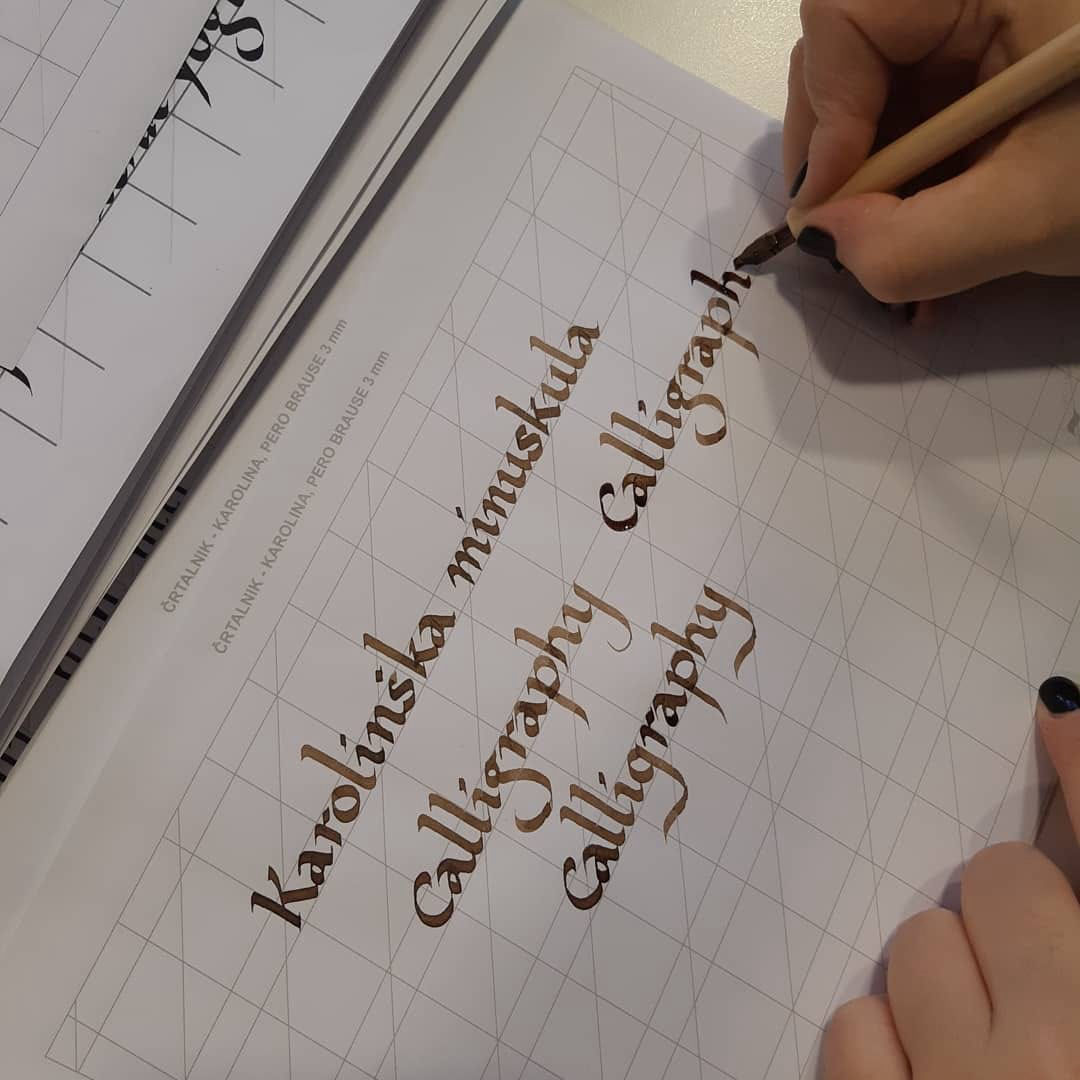 ČRTALNIK - KAROLINA, PERO BRAUSE 3 mm
ČRTALNIK - KAROLINA, PERO BRAUSE 3 mm
Karolinška minuskula
Calligraphy Calligraph
Calligraphy